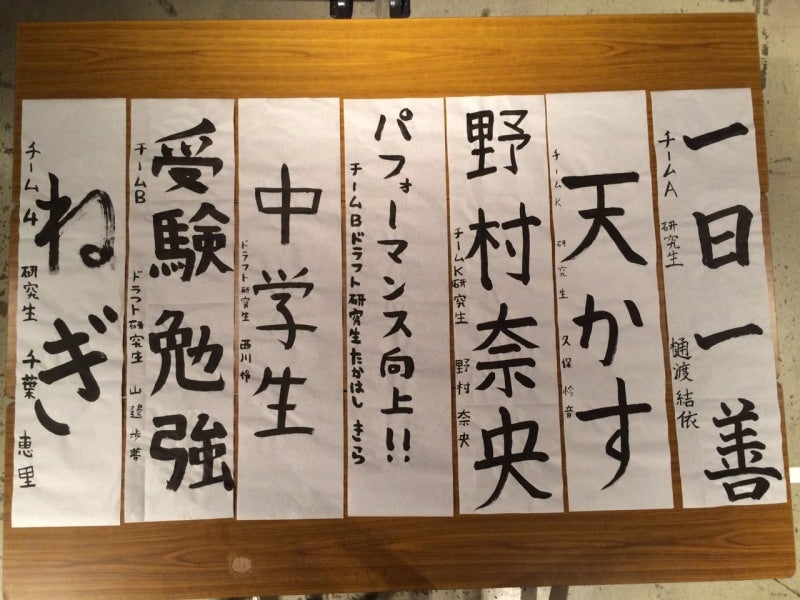 一日一善
チームA 研究生 樋渡結依
天かす
チームK 研究生 久保怜音
野村奈央
チームK研究生 野村奈央
パフォーマンス向上!!
チームBドラフト研究生たかはし きら
中学生
ドラフト研究生 西川怜
受験勉強
チームB ドラフト研究生 山邊歩夢
ねぎ
チーム4 研究生 千葉恵里